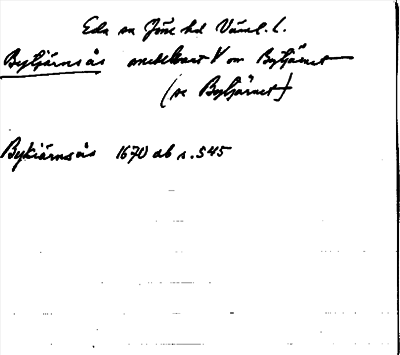 Eda sn Jösse hd Värml. l.
Bytjärnsås omedelbart V om Bytjärnet
(se Bytjärnet)
Bykiärnsås 1670 ab s. 545